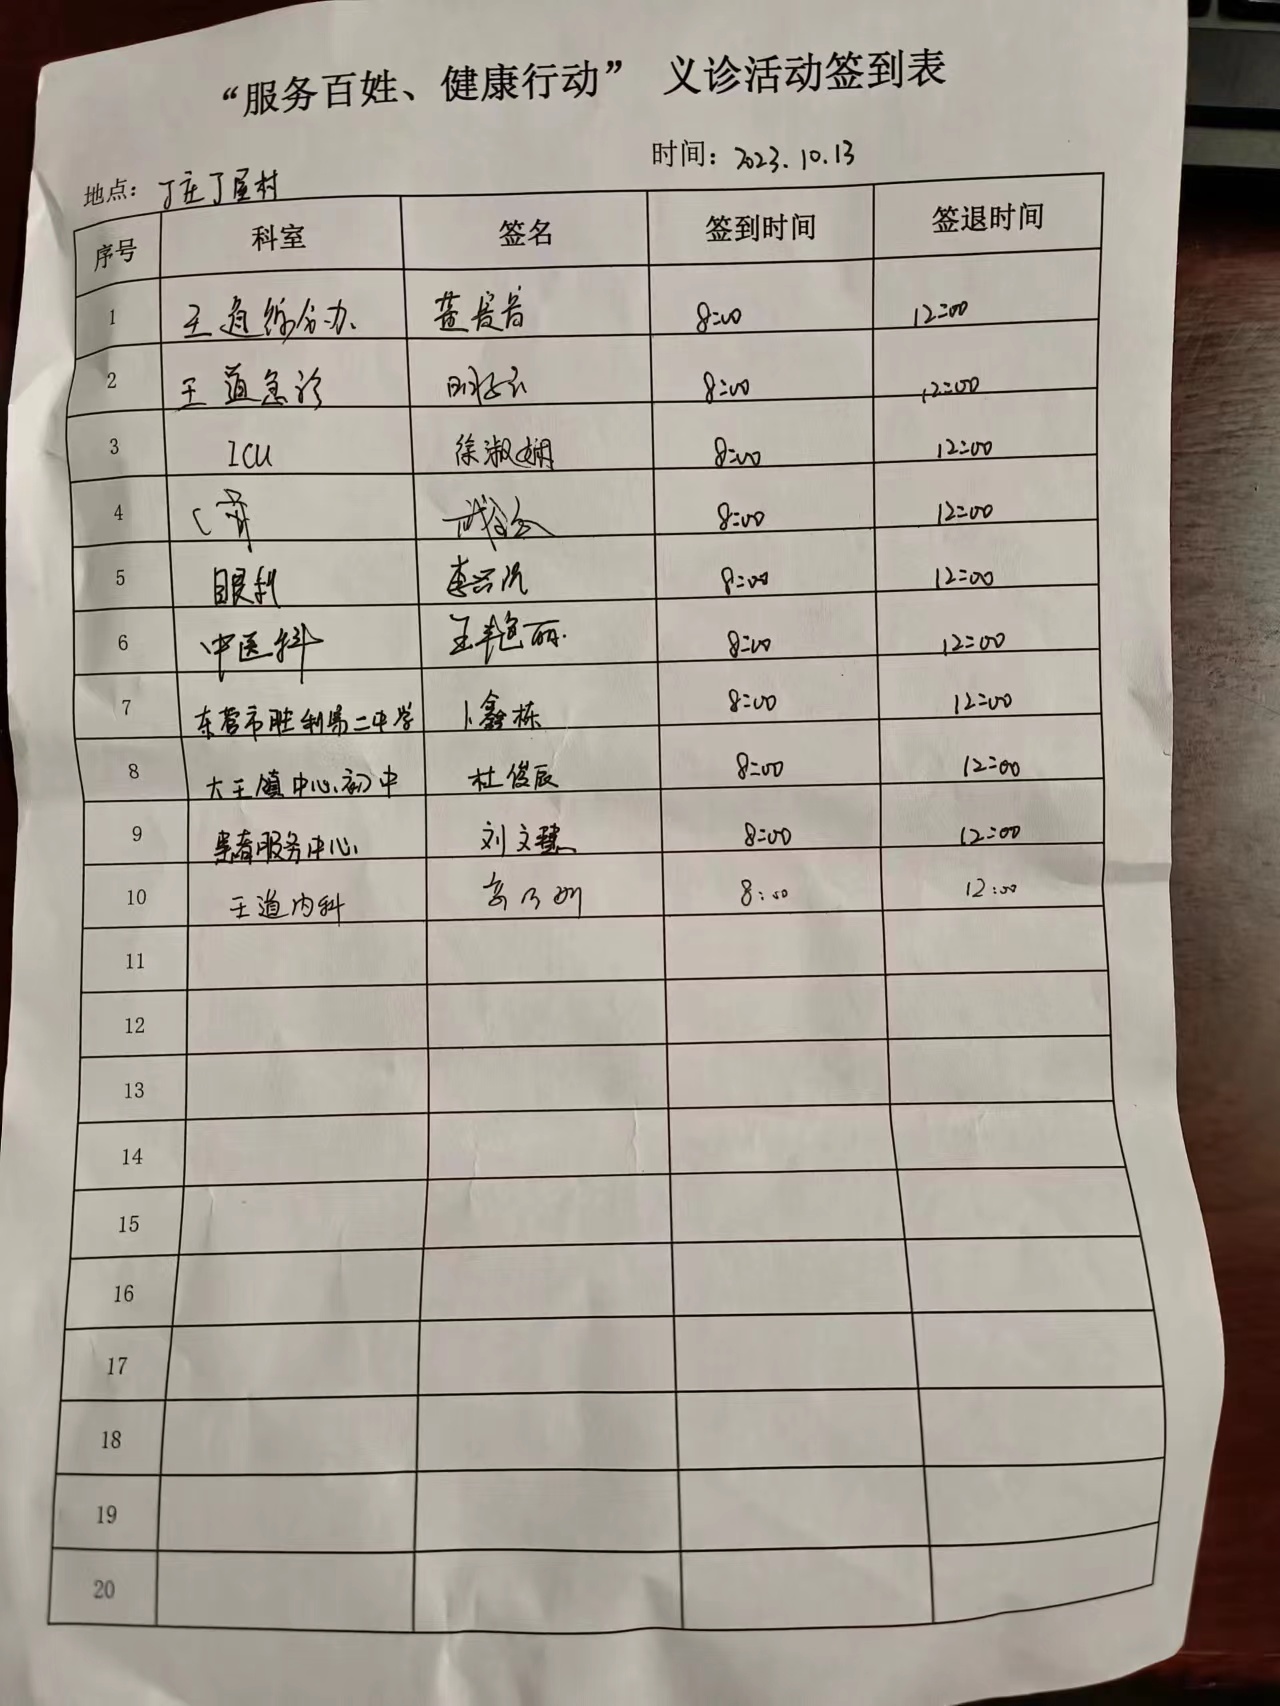 “服务百姓、健康行动” 义诊活动签到表
时间：2023.10.13
地点：丁庄丁屋村
序号 科室 签名 签到时间 签退时间
1 王道综合办 8:00 12:00
2 王道急诊 8:00 12:00
3 ICU 徐淑娴 8:00 12:00
4 8:00 12:00
5 眼科 8:00 12:00
6 中医科 王艳丽 8:00 12:00
7 东营市胜利第二中学 卜鑫栋 8:00 12:00
8 大王镇中心初中 杜俊辰 8:00 12:00
9 患者服务中心 刘文慧 8:00 12:00
10 王道内科 8:00 12:00
11
12
13
14
15
16
17
18
19
20